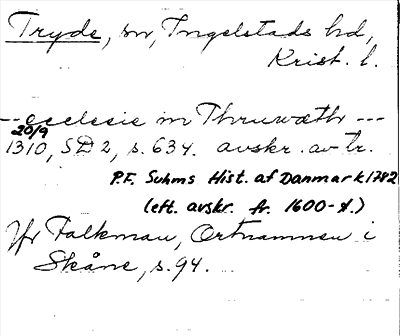 Tryde, sn, Ingelstads hd,
Krist. l.
-- ecclesie in Thruwæth ---
20/9
1310, SD 2, s. 634. avskr. av tr.
P.F. Suhms Hist. af Danmark 1782
(eft. avskr. fr. 1600-t.)
Jfr Falkman, Ortnamnen i
Skåne, s. 94.